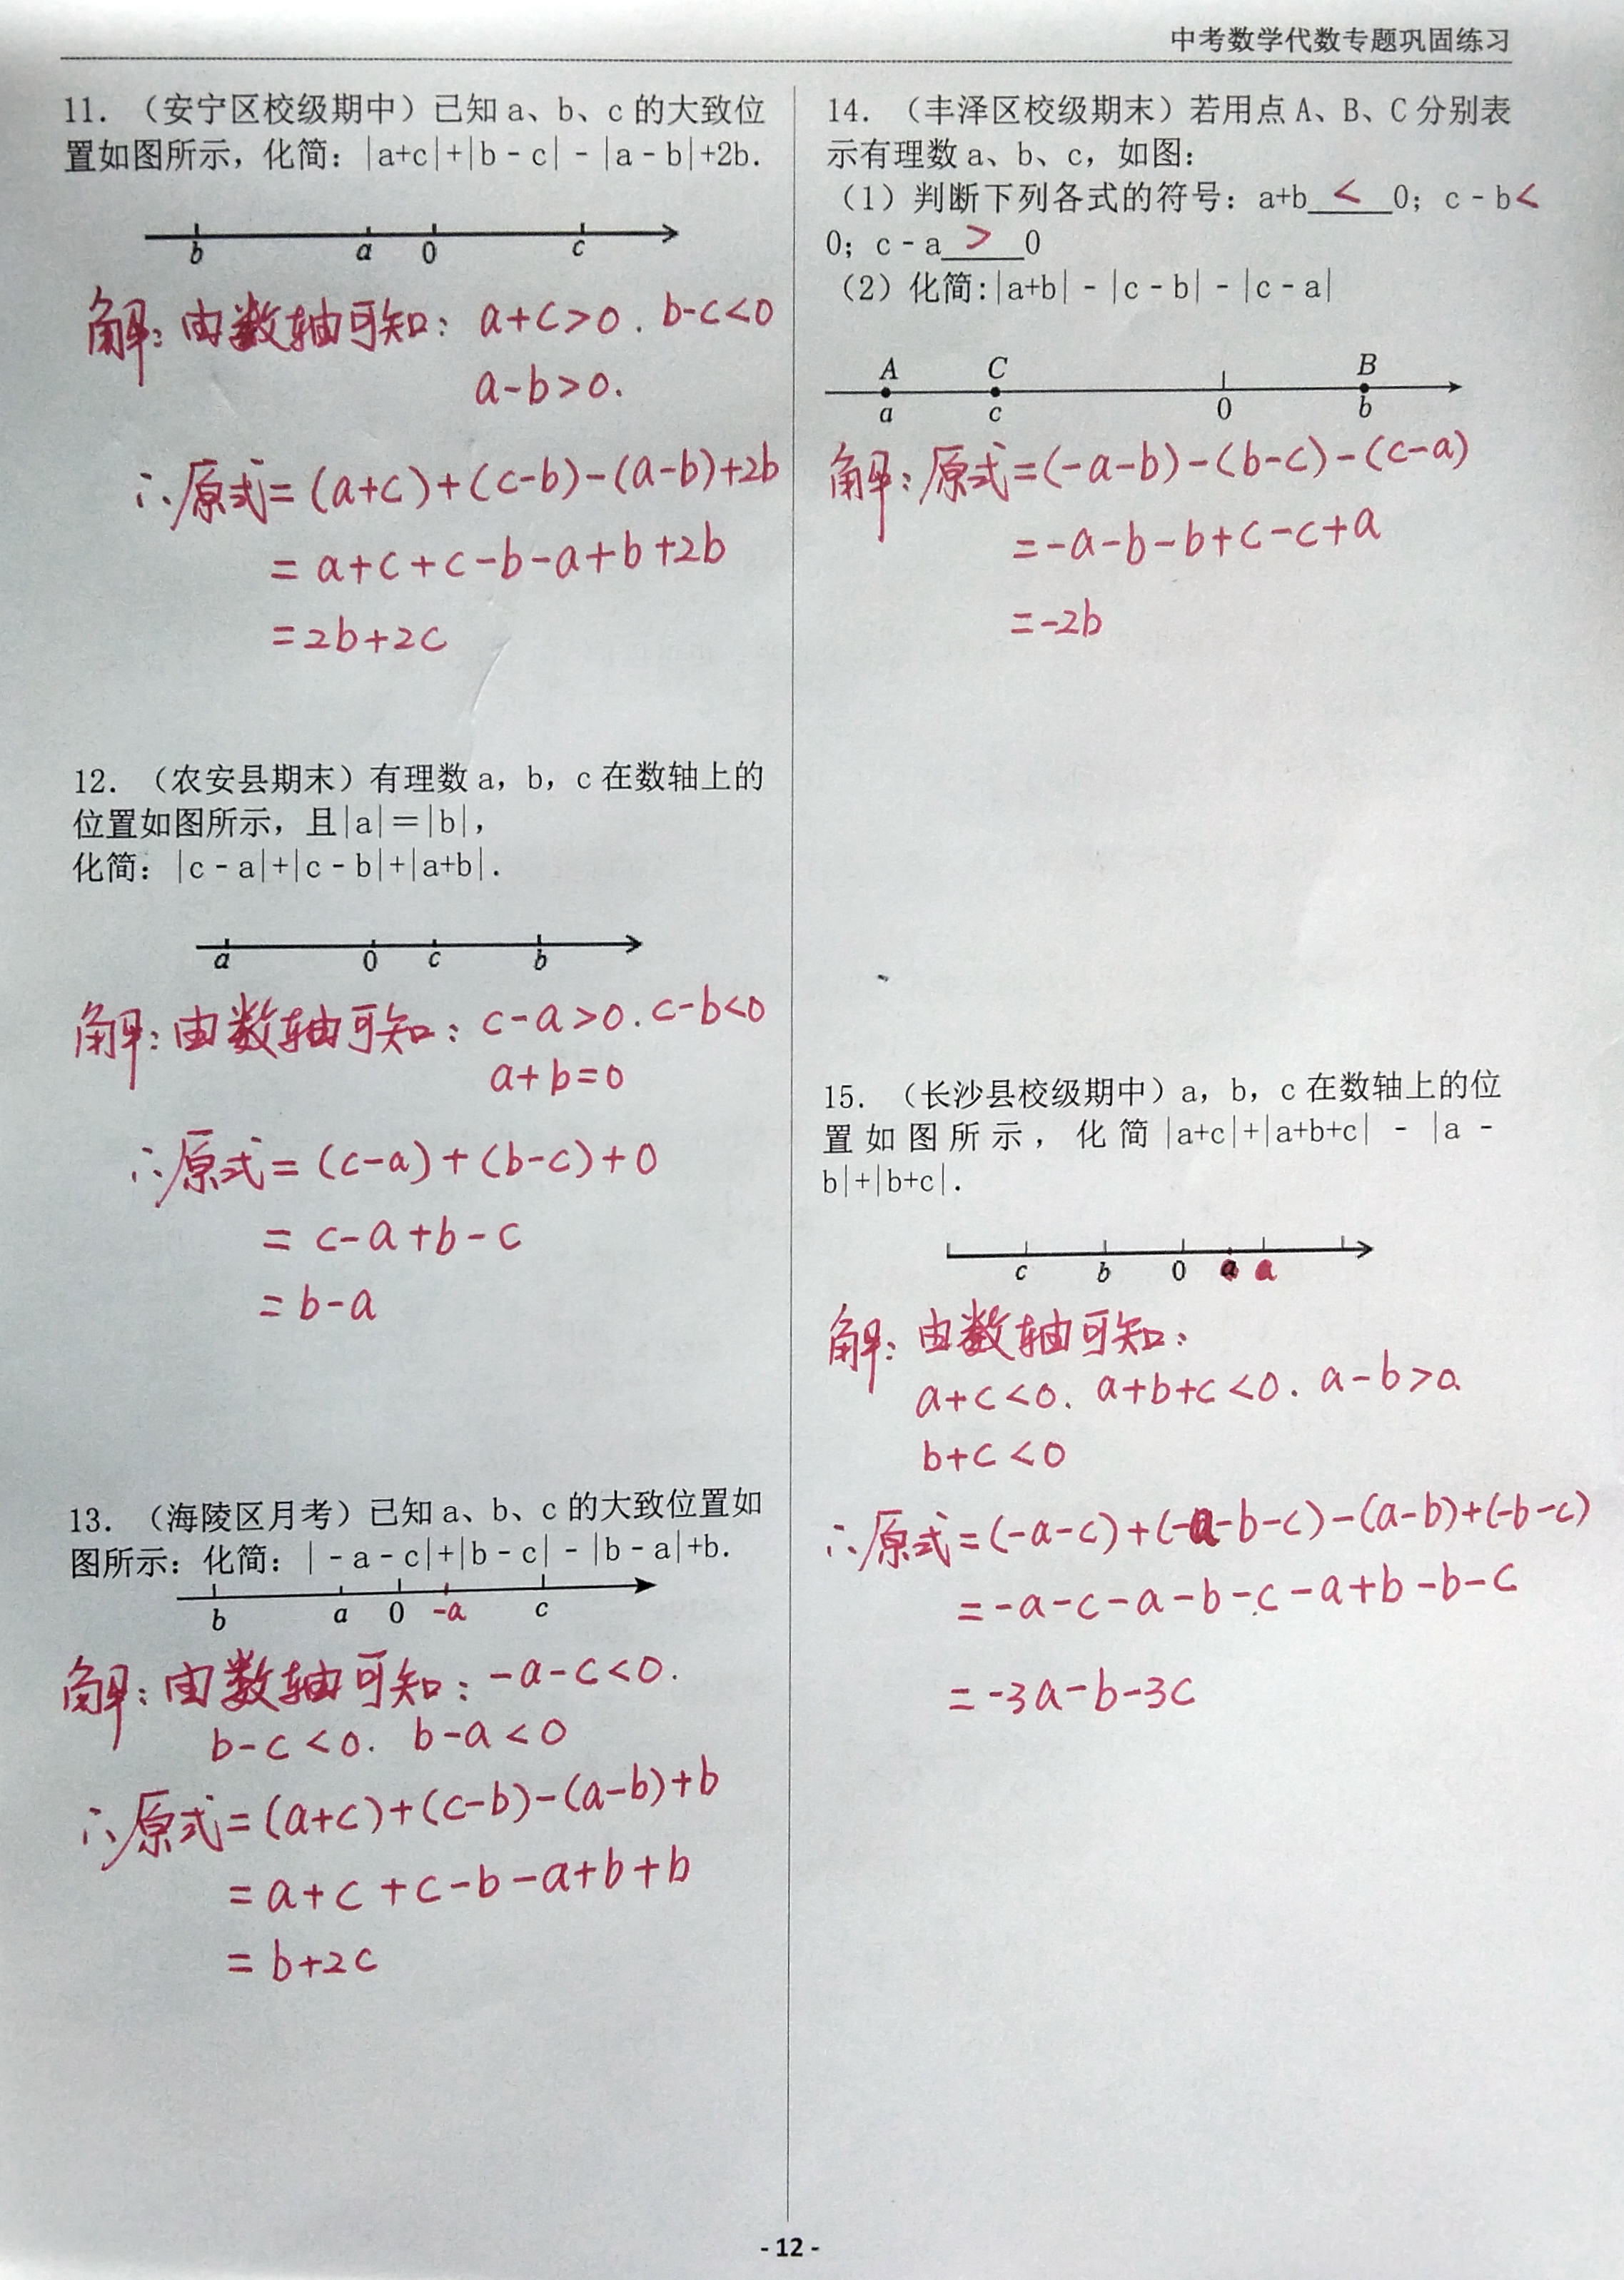 中考数学代数专题巩固练习
11. （安宁区校级期中）已知 a、b、c 的大致位
置如图所示，化简：|a+c|+|b－c|－|a－b|+2b.
b a 0 c
解：由数轴可知：a+c>0. b-c<0
a-b>0.
∴原式=(a+c)+(c-b)-(a-b)+2b
=a+c+c-b-a+b+2b
=2b+2c
12. （农安县期末）有理数 a，b，c 在数轴上的
位置如图所示，且|a|＝|b|，
化简：|c－a|+|c－b|+|a+b|.
a 0 c b
解：由数轴可知：c-a>0. c-b<0
a+b=0
∴原式=(c-a)+(b-c)+0
=c-a+b-c
=b-a
13. （海陵区月考）已知 a、b、c 的大致位置如
图所示：化简：|－a－c|+|b－c|－|b－a|+b.
b a 0 -a c
解：由数轴可知：-a-c<0.
b-c<0. b-a<0
∴原式=(a+c)+(c-b)-(a-b)+b
=a+c+c-b-a+b+b
=b+2c
14. （丰泽区校级期末）若用点 A、B、C 分别表
示有理数 a、b、c，如图：
（1）判断下列各式的符号：a+b__<__0；c－b<
0；c－a__>__0
（2）化简：|a+b|－|c－b|－|c－a|
A C B
a c 0 b
解：原式=(-a-b)-(b-c)-(c-a)
=-a-b-b+c-c+a
=-2b
15. （长沙县校级期中）a，b，c 在数轴上的位
置如图所示，化简|a+c|+|a+b+c|－|a－
b|+|b+c|.
c b 0 a a
解：由数轴可知：
a+c<0. a+b+c<0. a-b>0.
b+c<0
∴原式=(-a-c)+(-a-b-c)-(a-b)+(-b-c)
=-a-c-a-b-c-a+b-b-c
=-3a-b-3c
- 12 -